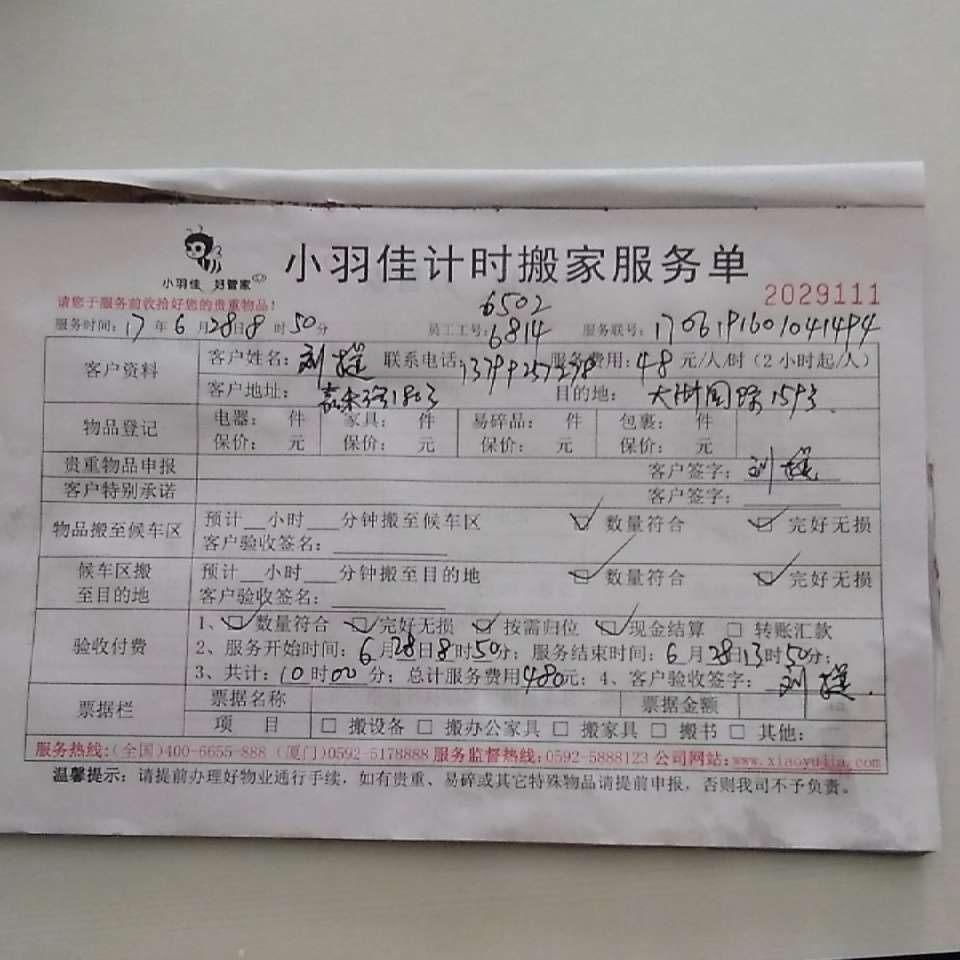 小羽佳 好管家
小羽佳计时搬家服务单
2029111
请您于服务前收拾好您的贵重物品!
6502
服务时间: 17 年 6 月 28 日 8 时 50 分 员工工号: 6814 服务联号: 1706191601041494
客户资料 客户姓名: 刘 联系电话: 服务费用: 48 元/人/时 (2小时起/人)
客户地址: 目的地:
物品登记 电器: 件 家具: 件 易碎品: 件 包裹: 件
保价: 元 保价: 元 保价: 元 保价: 元
贵重物品申报 客户签字: 刘
客户特别承诺 客户签字:
物品搬至候车区 预计__小时___分钟搬至候车区 数量符合 完好无损
客户验收签名:
候车区搬至目的地 预计__小时___分钟搬至目的地 数量符合 完好无损
客户验收签名:
验收付费 1、数量符合 完好无损 按需归位 现金结算 □ 转账汇款
2、服务开始时间: 6 月 28 日 8 时 50 分; 服务结束时间: 6 月 28 日 13 时 50 分;
3、共计: 10 时 00 分; 总计服务费用 480 元; 4、客户验收签字: 刘
票据栏 票据名称 票据金额
项 目 □ 搬设备 □ 搬办公家具 □ 搬家具 □ 搬书 □ 其他:
服务热线:(全国)400-6655-888 (厦门)0592-5178888 服务监督热线:0592-5888123 公司网站:www.xiaoyujia.com
温馨提示: 请提前办理好物业通行手续, 如有贵重、易碎或其它特殊物品请提前申报, 否则我司不予负责。